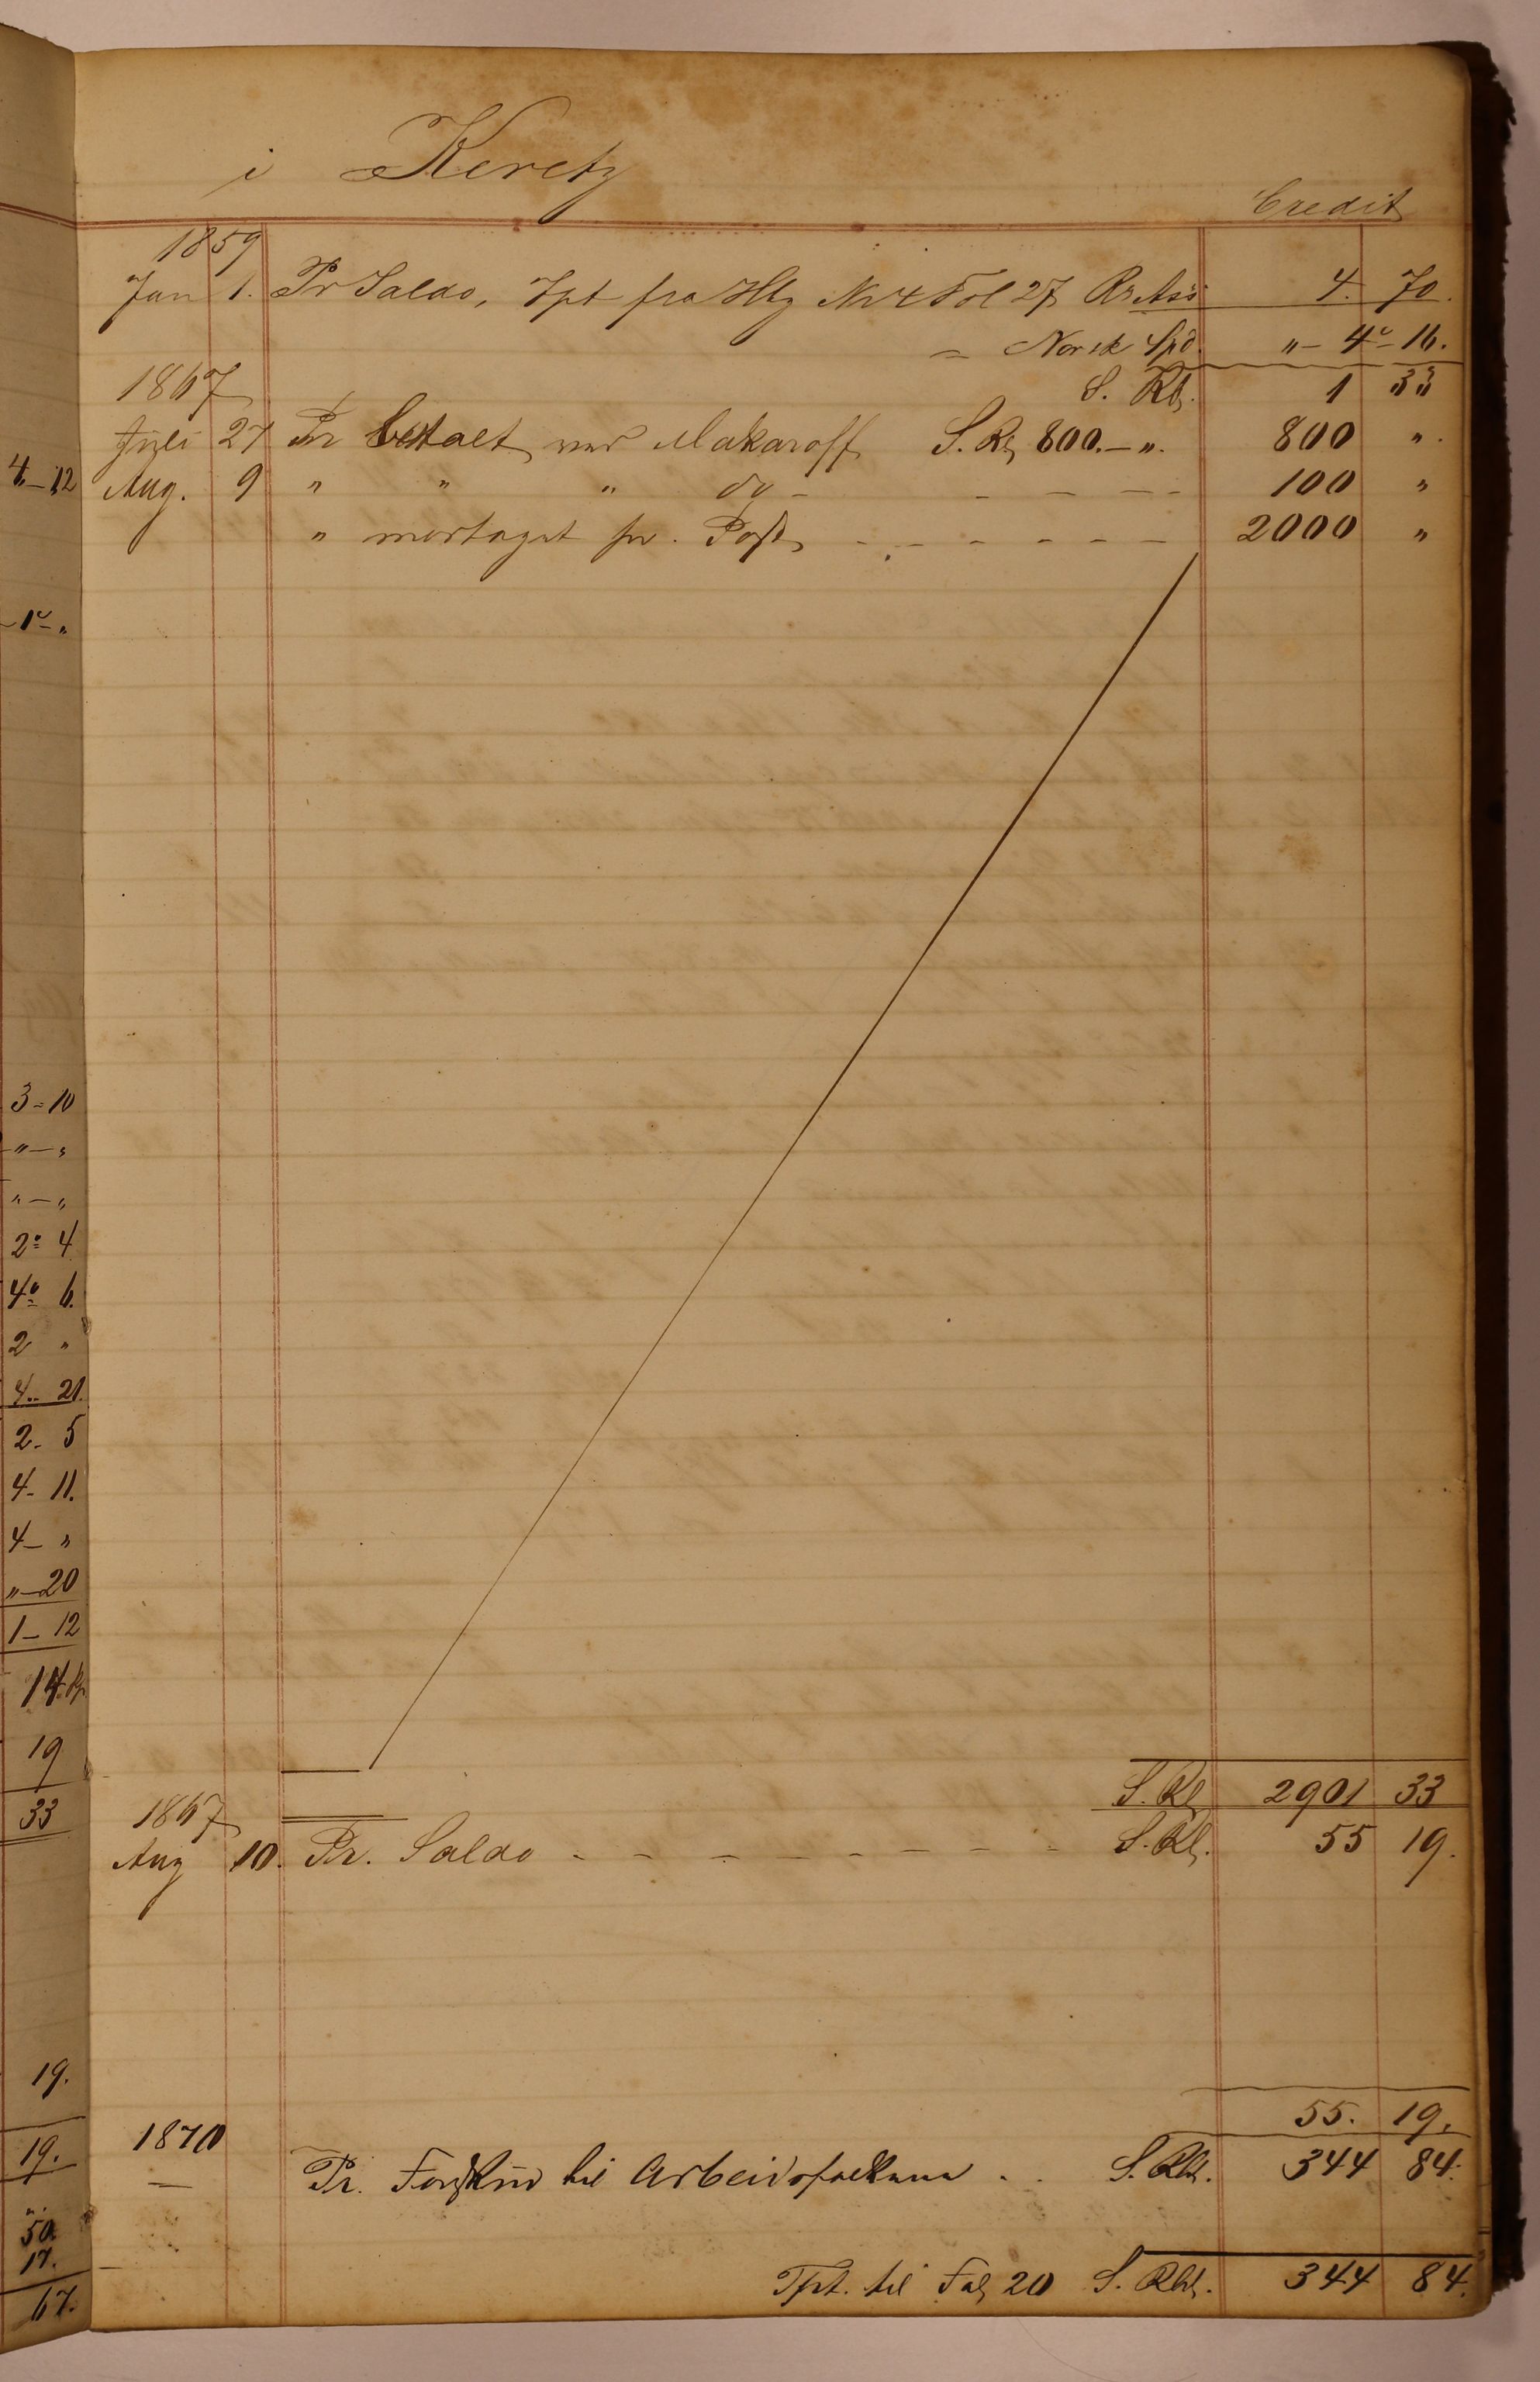 i Keretz
Credit
1859
Jan 1. Pr Saldo, Tpt fra Hbg No 4 Fol 27 Rr Ass 4. 70.
= Norsk Spd. " - 4 - 16.
1867 S. Rbl. 1 33
Juli 27 Pr betalt ved Makaroff S. Rbl 800. - ". 800 ".
Aug. 9 " " " do - - - - - 100 "
" modtaget pr. Post - - - - - - 2000 "
S. Rbl 2901 33
1867
Aug 10. Pr. Saldo - - - - - - - - S. Rbl. 55 19.
55. 19.
1870
— Pr. Forskud til Arbeidsfolkene . . S. Rbl. 344 84.
Tpt. til Fol 20 S. Rbl. 344 84.
4 - 12
1 - "
3 - 10
" - "
" - "
2 = 4
4 = 6.
2 "
4 .. 21.
2 - 5
4 - 11.
4 - "
" - 20
1 - 12
14
19
33
19.
19.
50.
17.
67.